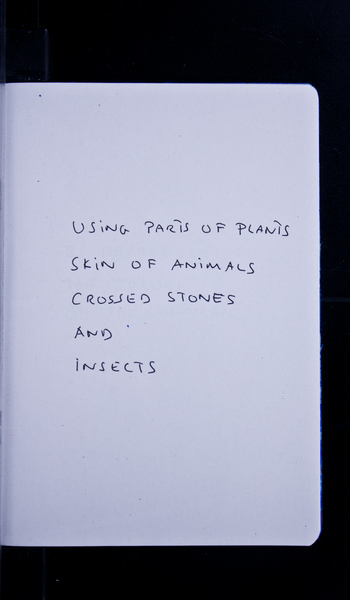 USING PARTS OF PLANTS
SKIN OF ANIMALS
CROSSED STONES
AND
INSECTS